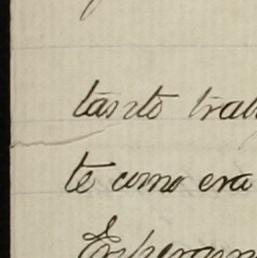 tanto trab
te como era
Esperam